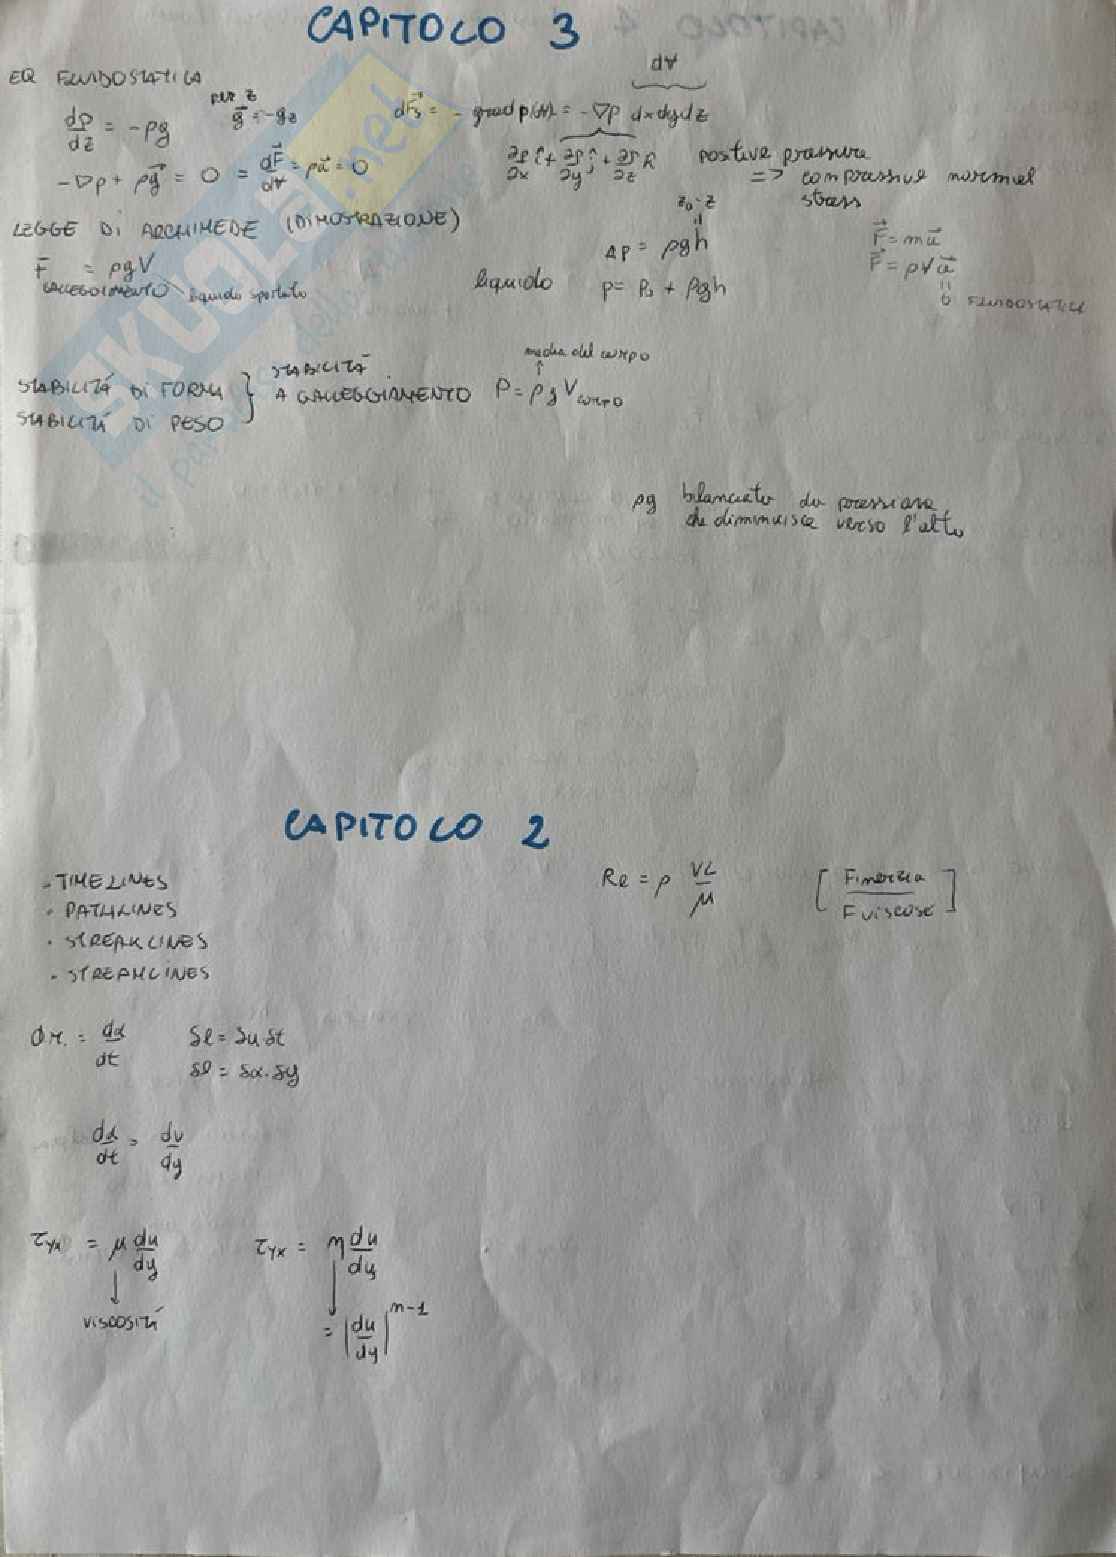 CAPITOLO 3
EQ FLUIDOSTATICA
dp/dz = -ρg
per z
g⃗ = -gz
dF⃗s = - grad p(dV) = -∇p dxdydz
dV
-∇p + ρg⃗ = 0 = dF⃗/dV = ρa⃗ = 0
∂p/∂x î + ∂p/∂y ĵ + ∂p/∂z k
positive pressure
=> compressive normal
stress
LEGGE DI ARCHIMEDE (DIMOSTRAZIONE)
F = ρgV
GALLEGGIAMENTO liquido spostato
z0-z
=
Δp = ρgh
liquido p = p0 + ρgh
F⃗ = ma⃗
F⃗ = ρVa⃗
=
0 FLUIDOSTATICA
STABILITÁ DI FORMA
STABILITÁ DI PESO
} STABILITÁ
A GALLEGGIAMENTO
media del corpo
↑
P = ρgVcorpo
ρg bilanciato da pressione
che diminuisce verso l'alto
CAPITOLO 2
- TIMELINES
· PATHLINES
· STREAKLINES
· STREAMLINES
Re = ρ VL/μ [Finerzia/Fviscose]
= dα/dt
δl = δu δt
δl = δα·δy
dα/dt = du/dy
τyx = μ du/dy
↓
VISCOSITÁ
τyx = η du/dy
↓
= |du/dy|^n-1